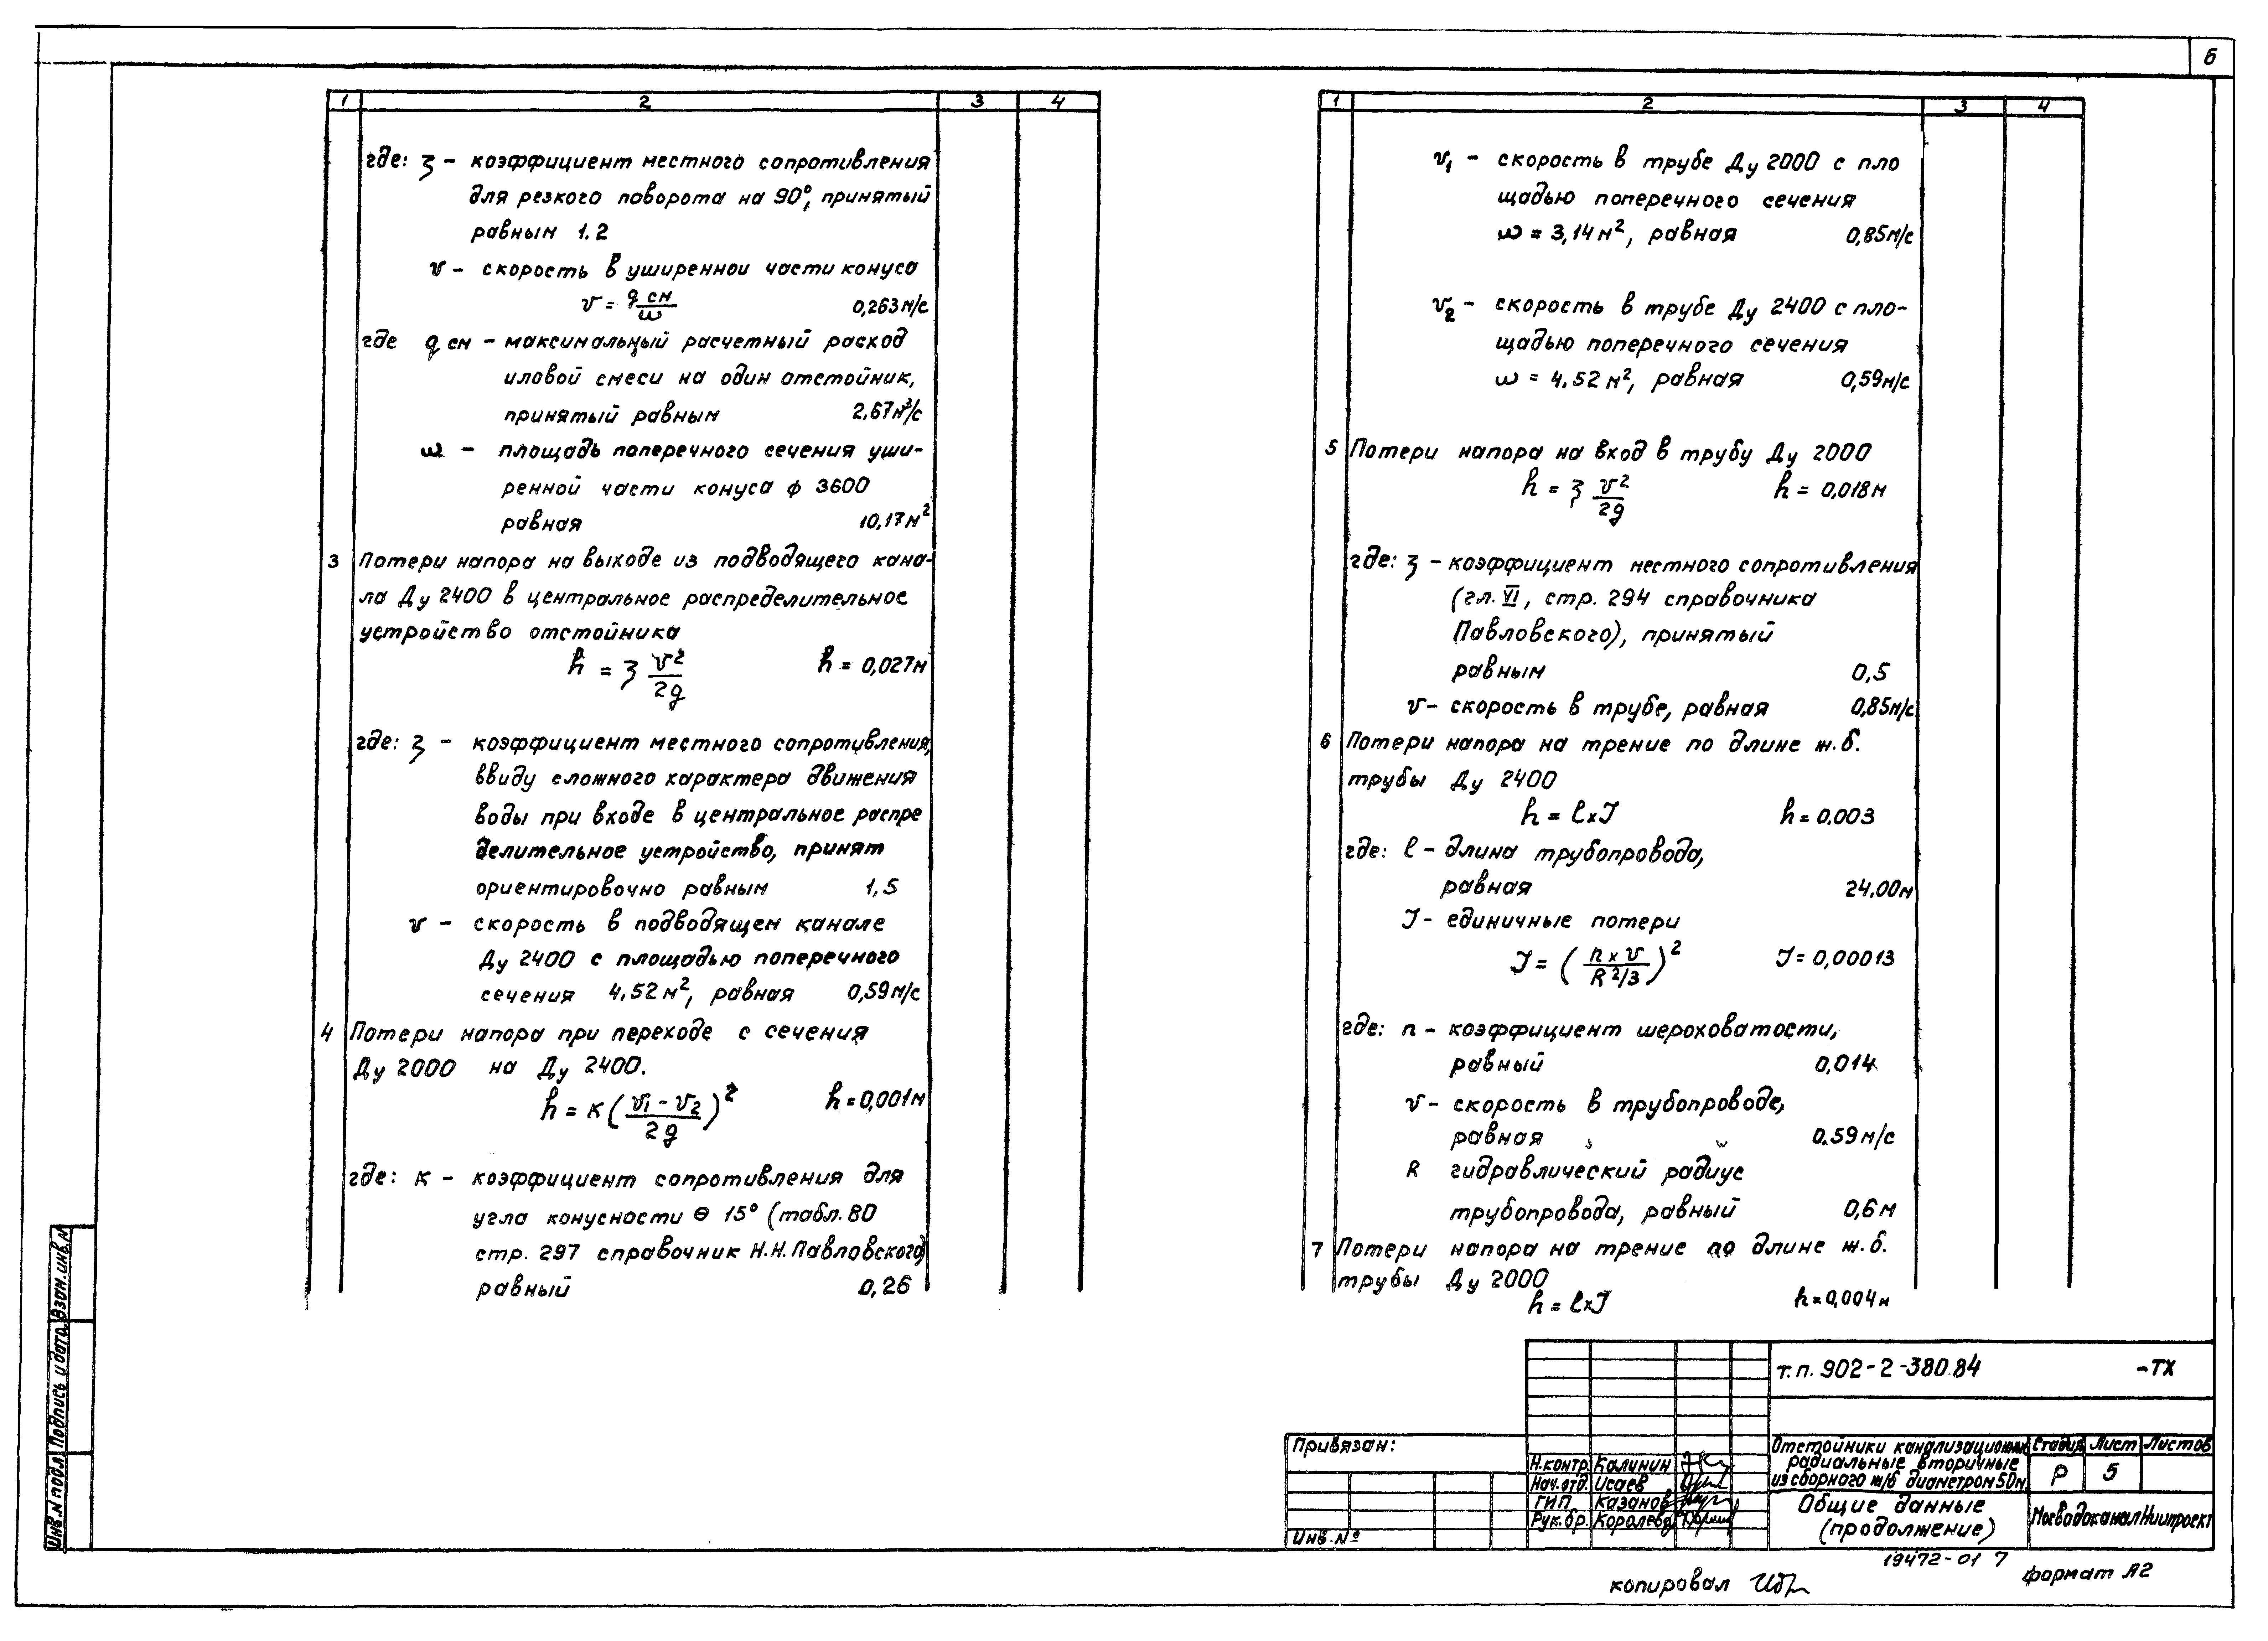 6
1 2 3 4
где: ξ – коэффициент местного сопротивления
для резкого поворота на 90°, принятый
равным 1.2
v – скорость в уширенной части конуса
v = q см / ω 0,263 м/с
где q см – максимальный расчетный расход
иловой смеси на один отстойник,
принятый равным 2,67 м³/с
ω – площадь поперечного сечения уши-
ренной части конуса ф 3600
равная 10,17 м²
3 Потери напора на выходе из подводящего кана-
ла Ду 2400 в центральное распределительное
устройство отстойника
h = ξ v²/2g h = 0,027 м
где: ξ – коэффициент местного сопротивления,
ввиду сложного характера движения
воды при входе в центральное распре
делительное устройство, принят
ориентировочно равным 1,5
v – скорость в подводящем канале
Ду 2400 с площадью поперечного
сечения 4,52 м², равная 0,59 м/с
4 Потери напора при переходе с сечения
Ду 2000 на Ду 2400.
h = к (v₁ – v₂ / 2g)² h = 0,001 м
где: к – коэффициент сопротивления для
угла конусности Θ 15° (табл. 80
стр. 297 справочник Н.Н. Павловского)
равный 0,26
1 2 3 4
v₁ – скорость в трубе Ду 2000 с пло
щадью поперечного сечения
ω = 3,14 м², равная 0,85 м/с
v₂ – скорость в трубе Ду 2400 с пло-
щадью поперечного сечения
ω = 4.52 м², равная 0,59 м/с
5 Потери напора на вход в трубу Ду 2000
h = ξ v²/2g h = 0,018 м
где: ξ – коэффициент местного сопротивления
(гл. VI, стр. 294 справочника
Павловского), принятый
равным 0,5
v – скорость в трубе, равная 0,85 м/с
6 Потери напора на трение по длине ж.б.
трубы Ду 2400
h = l x J h = 0.003
где: l – длина трубопровода,
равная 24.00 м
J – единичные потери
J = (n x v / R 2/3)² J = 0,00013
где: n – коэффициент шероховатости,
равный 0,014
v – скорость в трубопроводе,
равная 0.59 м/с
R гидравлический радиус
трубопровода, равный 0,6 м
7 Потери напора на трение по длине ж.б.
трубы Ду 2000
h = l x J h = 0,004 м
т.п. 902-2-380.84 -ТХ
Привязан:
Инв. №
Н.контр. Калинин
Нач.отд. Исаев
ГИП Казанов
Рук.бр. Королева
Отстойники канализационные
радиальные вторичные
из сборного ж/б диаметром 50м
Стадия Лист Листов
Р 5
Общие данные
(продолжение)
МосводоканалНИИпроект
19472-01 7
копировал
формат А2
Инв.№ подл. Подпись и дата Взам.инв.№